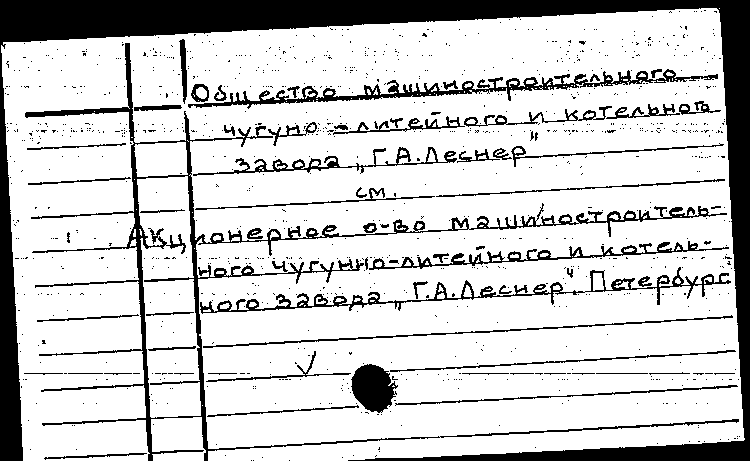 Общество машиностроительного
чугуно-литейного и котельного
завода „Г.А.Леснер"
см.
Акционерное о-во машиностроитель-
ного чугунно-литейного и котель-
ного завода „Г.А.Леснер". Петербург